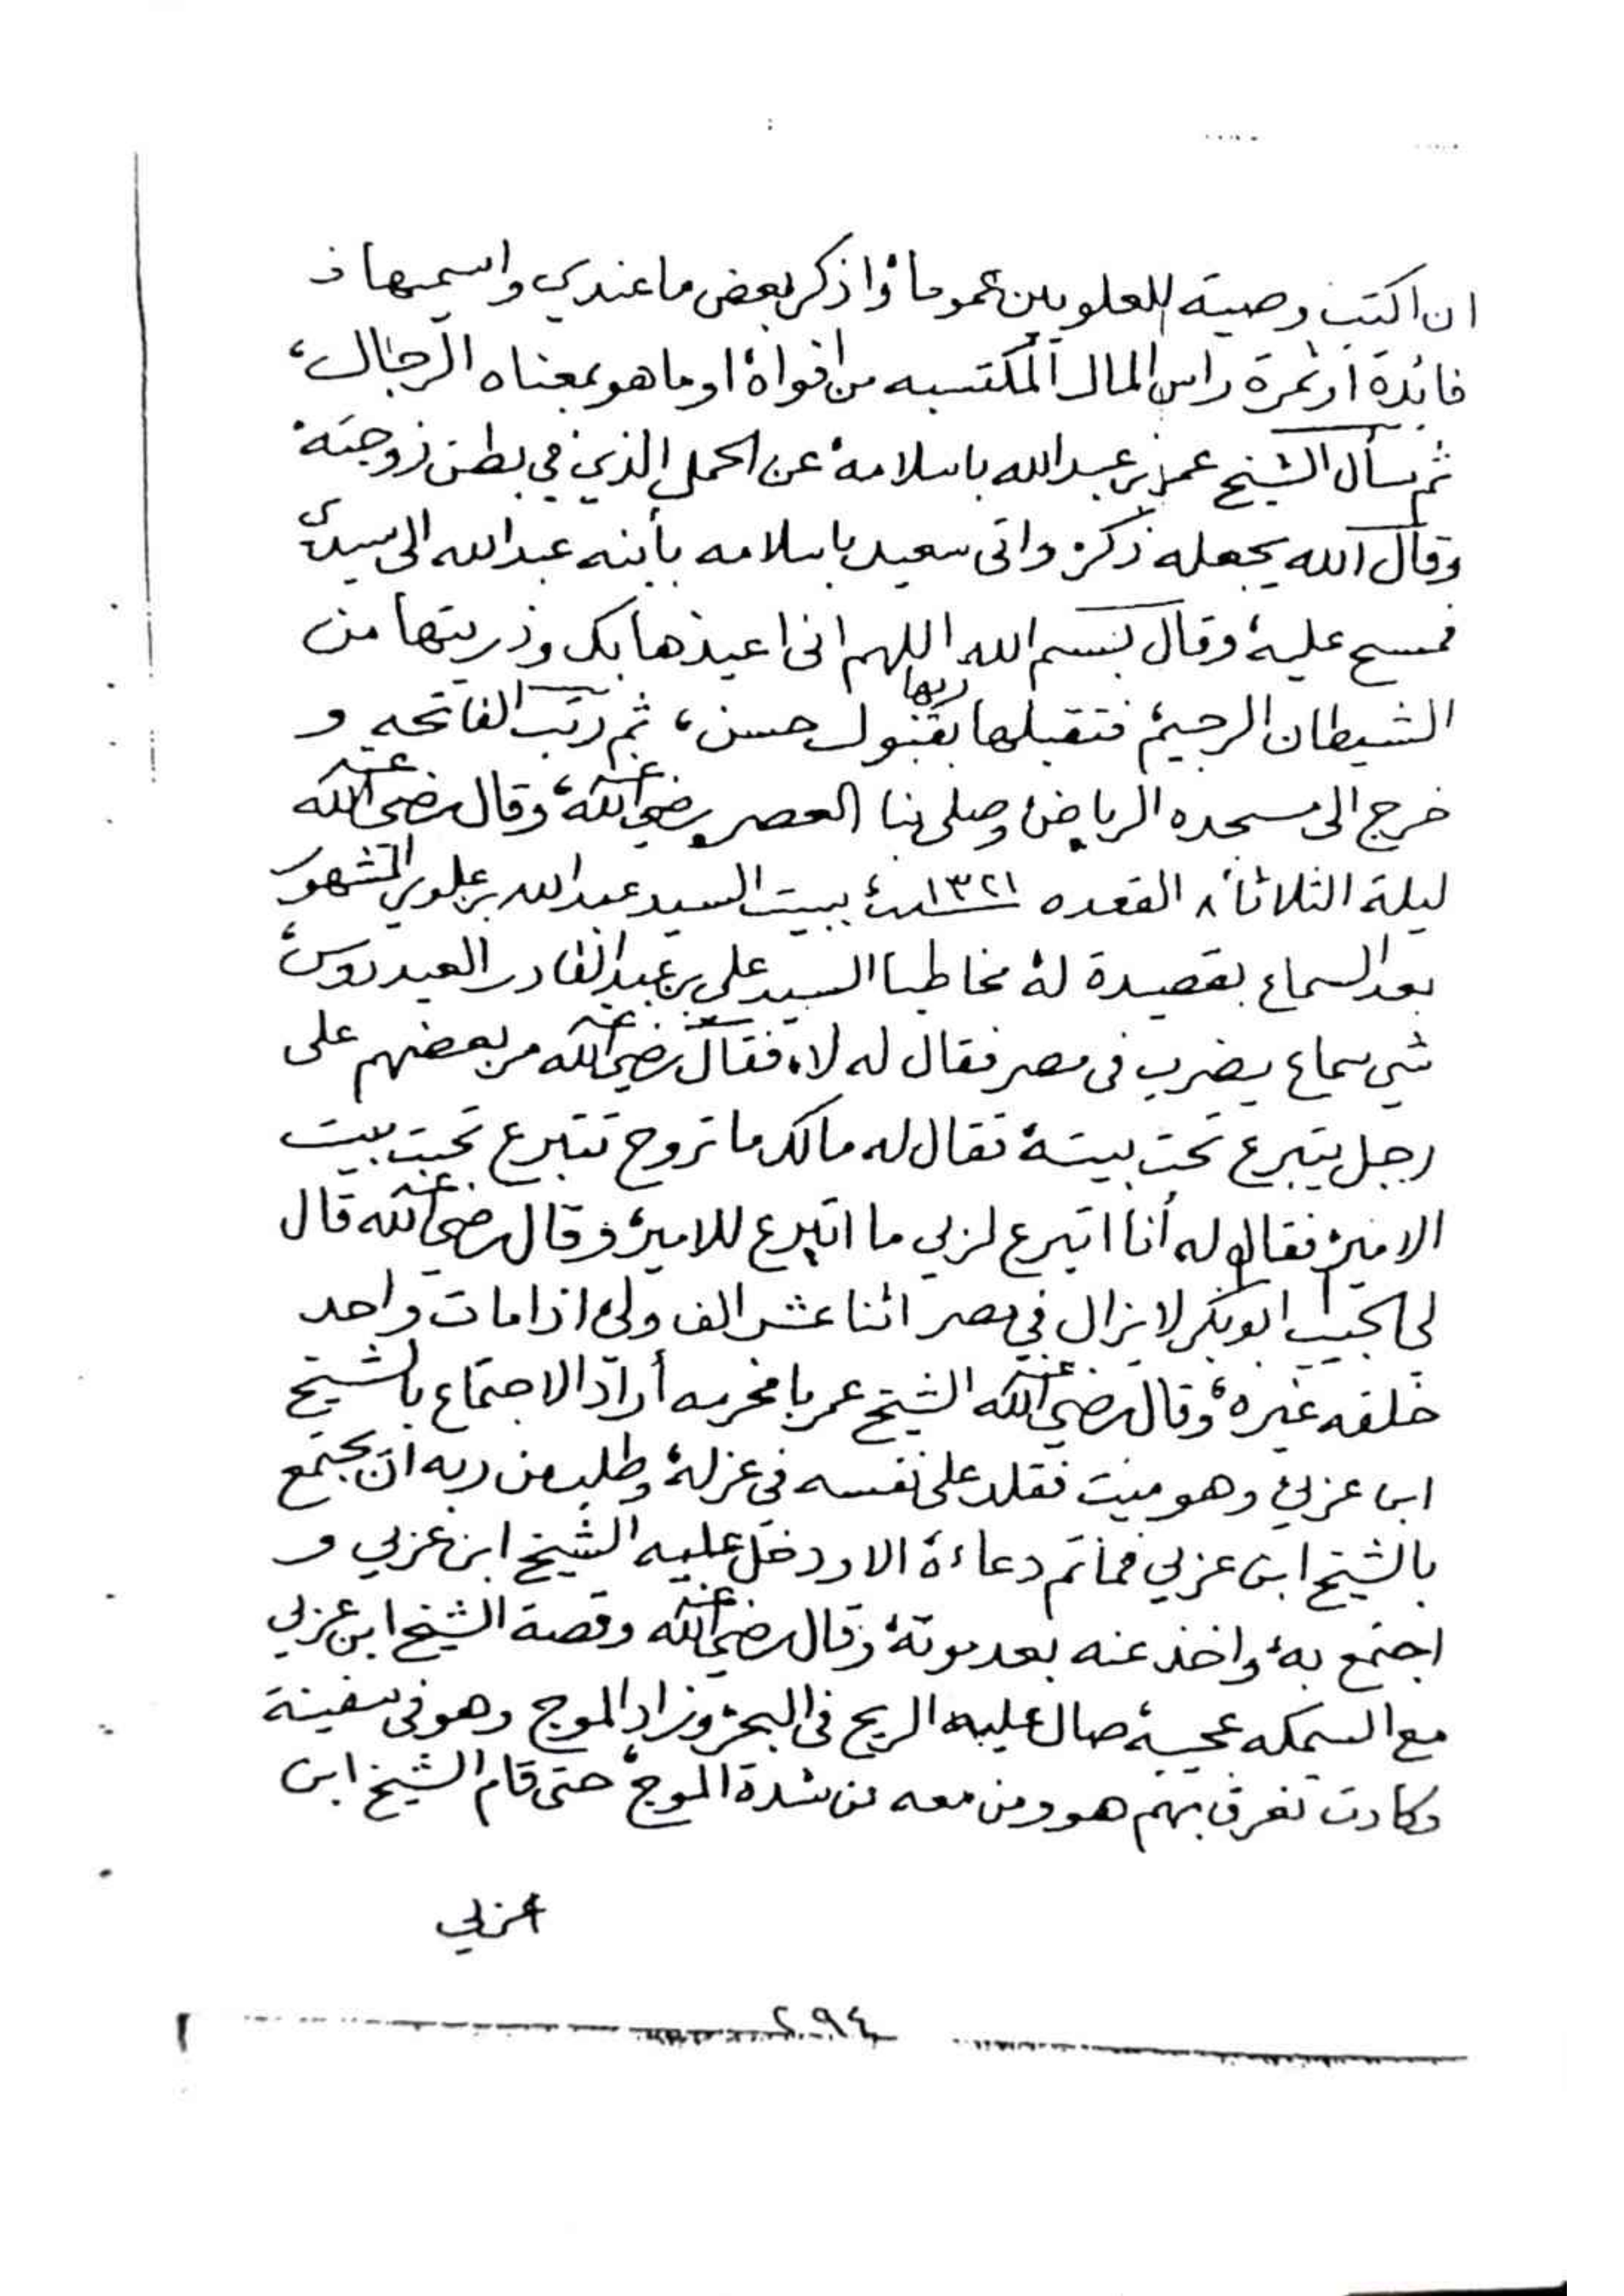 ان اكتب وصية للعلويين عموما واذكر بعض ما عندي واسميها
فائدة او ثمرة راس المال المكتسبه من افواه او ما هو بمعناه الرجال،
ثم سأل الشيخ عمر بن عبدالله باسلامه عن الحمل الذي في بطن زوجته
وقال الله يجعله ذكر واتى سعيد باسلامه بأبنه عبدالله الى سيدي
فمسح عليه وقال بسم الله اللهم انى اعيذها بك وذريتها من
الشيطان الرجيم فتقبلها ربها بقبول حسن، ثم رتب الفاتحه و
خرج الى مسجده الرياض وصلى بنا العصر رضي الله عنه، وقال رضي الله عنه
ليلة الثلاثاء ٨ القعده سنة ١٣٢١ ببيت السيد عبدالله بن علوي المشهور
بعد السماع بقصيدة له مخاطبا السيد علي بن عبدالقادر العيدروس،
شي سماع يضرب فى مصر فقال له لا، فقال رضي الله عنه مر بعضهم على
رجل يتبرع تحت بيته فقال له مالك ما تروح تتبرع تحت بيت
الامير فقال له أنا اتبرع لربي ما اتبرع للامير وقال رضي الله عنه قال
لي الحبيب ابوبكر لا يزال في مصر اثنا عشر الف ولي اذا مات واحد
خلفه غيره، وقال رضي الله عنه الشيخ عمر بامخرمه أراد الاجتماع بالشيخ
ابن عربي وهو ميت فقلد على نفسه في عزله وطلب من ربه ان يجتمع
بالشيخ ابن عربي فما تم دعاءه الا ودخل عليه الشيخ ابن عربي و
اجتمع به واخذ عنه بعد موته وقال رضي الله عنه وقصة الشيخ ابن عربي
مع السمكه عجيبه صال عليه الريح فى البحر وزاد الموج وهو فى سفينة
وكادت تغرق بهم هو ومن معه من شدة الموج، حتى قام الشيخ ابن
عربي
٢٩٤